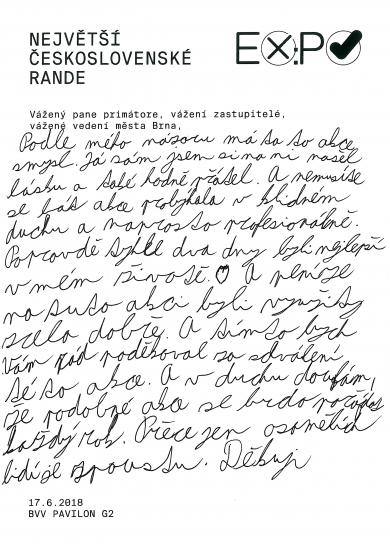 NEJVĚTŠÍ
ČESKOSLOVENSKÉ
RANDE
EX:PO
Vážený pane primátore, vážení zastupitelé,
vážené vedení města Brna,
Podle mého názoru má tato akce
smysl. Já sám jsem si na ní našel
lásku a také hodně přátel. A nemusíte
se bát akce probýhala v klidném
duchu a naprosto profesionálně.
Popravdě tyhle dva dny byli nejlepší
v mém životě. ♡ A peníze
na tuto akci byli využity
zcela dobře. A tímto bych
Vám rád poděkoval za schválení
této akce. A v duchu doufám,
že podobné akce se budo pořádat
každý rok. Přece jen osamělích
lidí je spoustu. Děkuji
17.6.2018
BVV PAVILON G2